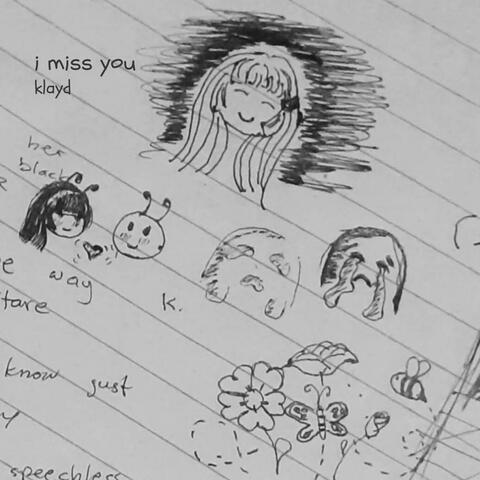 i miss you
klayd
her
black
way
stare
k.
know just
speechless